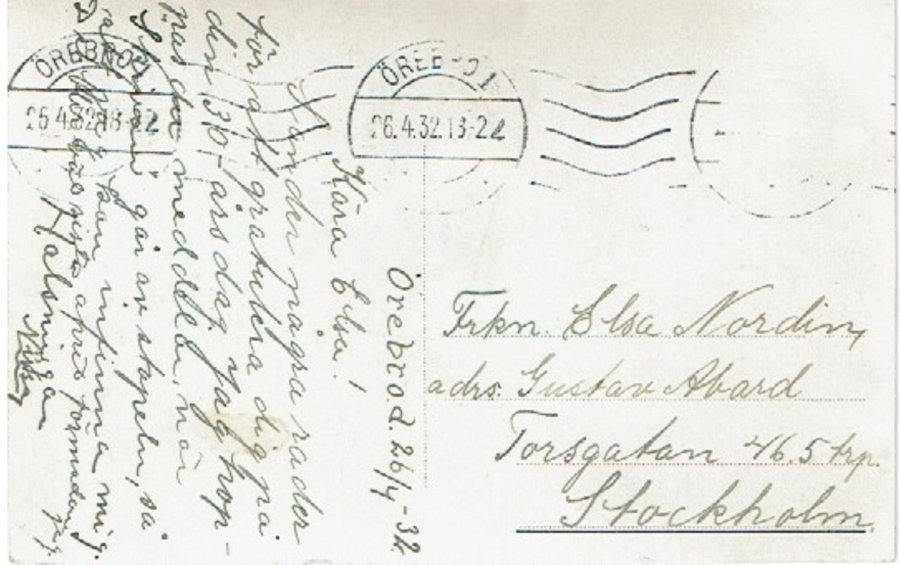 ÖREBRO 1
26.4.32.18-22
ÖREBRO 1
26.4.32.13-22
Örebro d. 26/4-32.
Kära Elsa!
Sänder några rader
för att gratulera dig på
din 30-årsdag. Jag hop-
pas du meddelar när
går av stapeln, så
jag kan infinna mig.
april
Hälsningar
Frkn. Elsa Nordin,
adrs. Gustav Abard
Torsgatan 46. 5 trp.
Stockholm.